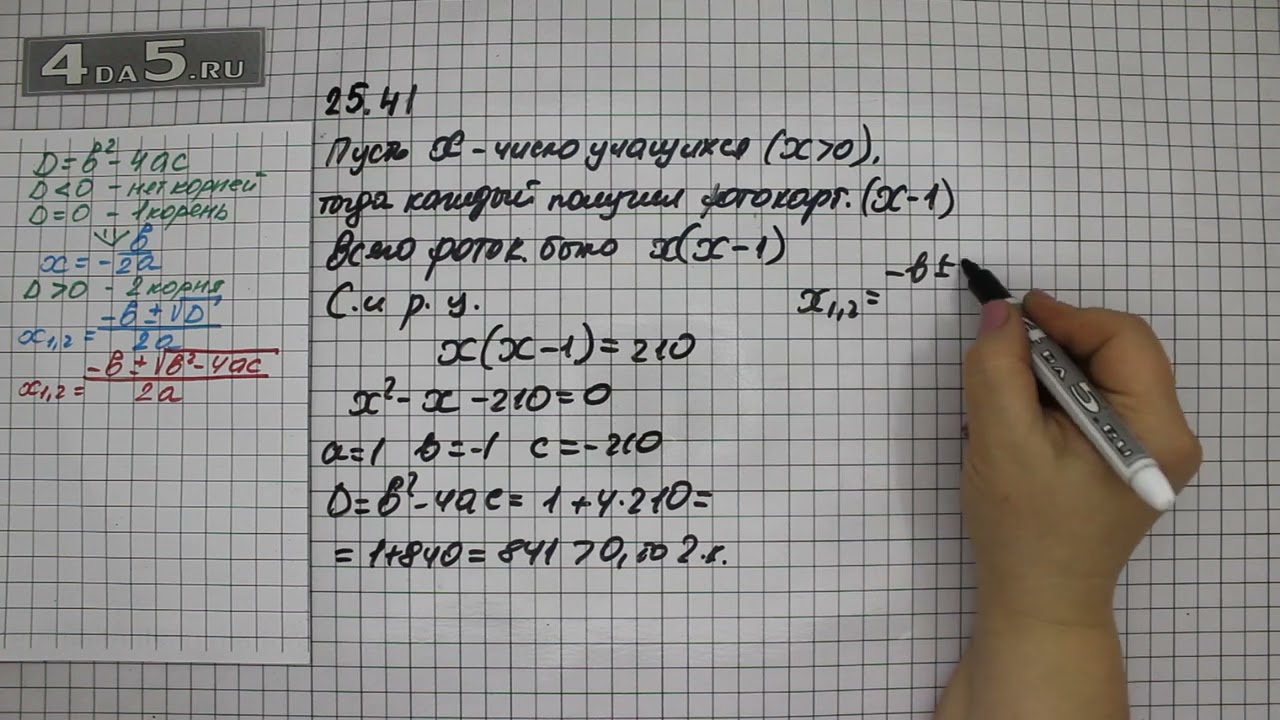 4DA5.RU
D=b²-4ac
D<0 - нет корней
D=0 - 1 корень
x=-b/2a
D>0 - 2 корня
x₁,₂=(-b±√D)/2a
x₁,₂=(-b±√b²-4ac)/2a
25.41
Пусть x - число учащихся (x>0),
тогда каждый получил фотокарт. (x-1)
Всего фоток. было x(x-1)
С. и р. у.
x(x-1)=210
x²-x-210=0
a=1 b=-1 c=-210
D=b²-4ac=1+4·210=
=1+840=841>0, то 2 к.
x₁,₂= -b±
DA5.RU